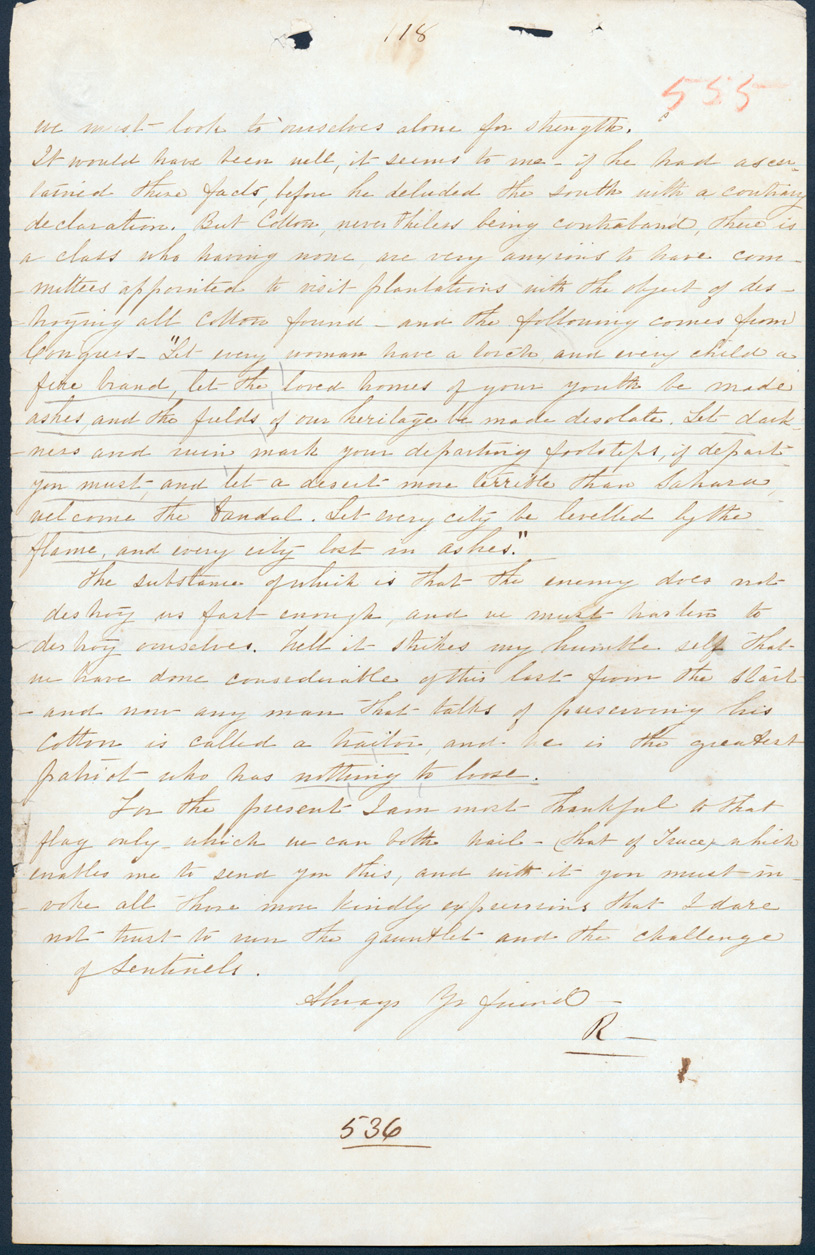 118
555
we must look to ourselves alone for strength.
It would have been well, it seems to me - if he had ascer-
tained these facts, before he deluded the south with a contrary
declaration. But Cotton, nevertheless being contraband, there is
a class who having none, are very anxious to have com-
-mittees appointed to visit plantations with the object of des-
-troying all Cotton found - and the following comes from
Congress - "Let every woman have a torch, and every child a
fire brand, let the loved homes of your youth be made
ashes, and the fields of our heritage be made desolate. Let dark-
-ness and ruin mark your departing footsteps, if depart
you must, and let a desert more terrible than Sahara,
welcome the Vandal. Let every city be levelled by the
flame, and every city lost in ashes."
The substance of which is that the enemy does not
destroy us fast enough, and we must hasten to
destroy ourselves. Well it strikes my humble self that
we have done considerable of this last from the start
- and now any man that talks of preserving his
Cotton is called a traitor, and he is the greatest
patriot who has nothing to loose.
For the present I am most thankful to that
flag only which we can both hail - (that of Truce) which
enables me to send you this, and with it you must in-
-voke all those more kindly expressions that I dare
not trust to run the gauntlet and the challenge
of Sentinels.
Always Yr friend -
R -
536